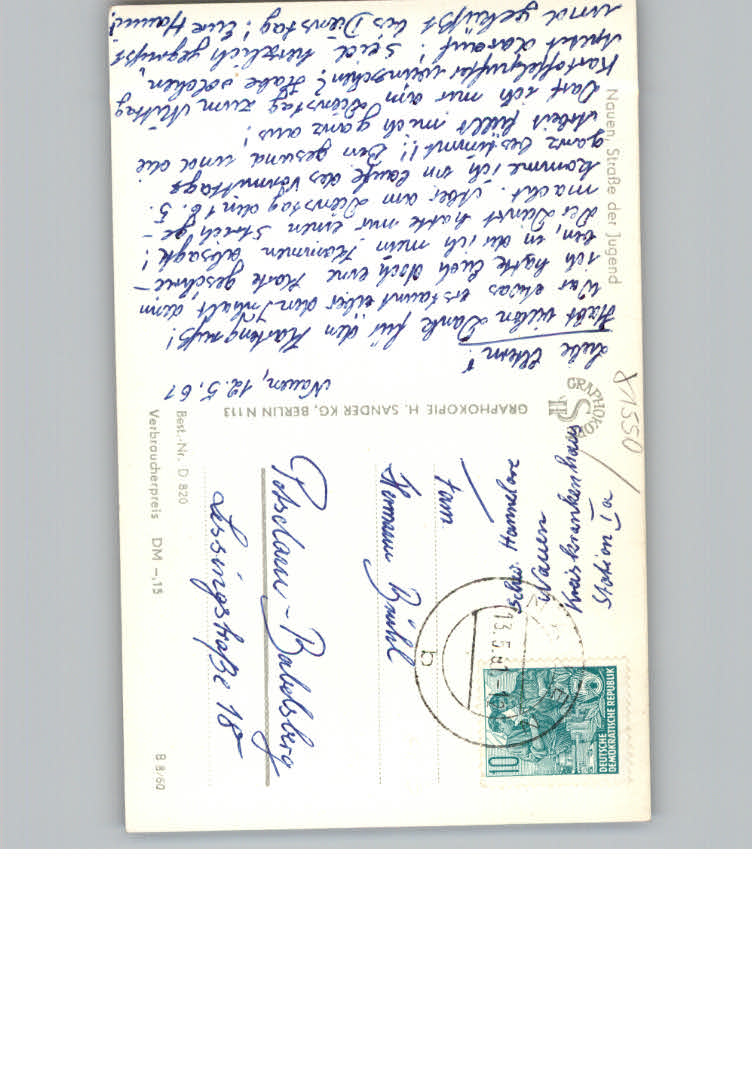 Nauen, Straße der Jugend
Nauen, 12.5.61
Liebe Eltern!
Habt vielen Dank für den Kartengruß!
War etwas erstaunt über den Inhalt denn
ich hatte Euch doch eine Karte geschrie-
ben, in der ich mein Kommen absagte!
Der Dienst hatte mir einen Strich ge-
macht. Aber am Dienstag den 16.5.
komme ich im Laufe des Vormittags
ganz bestimmt!! Bin gesund und die
Arbeit füllt mich ganz aus!
Darf ich mir am Dienstag zum Mittag
Kartoffelpuffer wünschen? Habe solchen
darauf! Seid herzlich gegrüßt
und geküßt bis Dienstag! Eure Hanni!
GRAPHOKOPIE H. SANDER KG, BERLIN N 113
GRAPHOKOPIE
H S
X1550
Schw. Hannelore
Nauen
Kreiskrankenhaus
Station Ia
13.5.61
b
10
DEUTSCHE
DEMOKRATISCHE REPUBLIK
Fam
Hermann Brühl
Potsdam-Babelsberg
Lessingstraße 18
Best.-Nr. D 820
Verbraucherpreis DM -,15
B 8/60